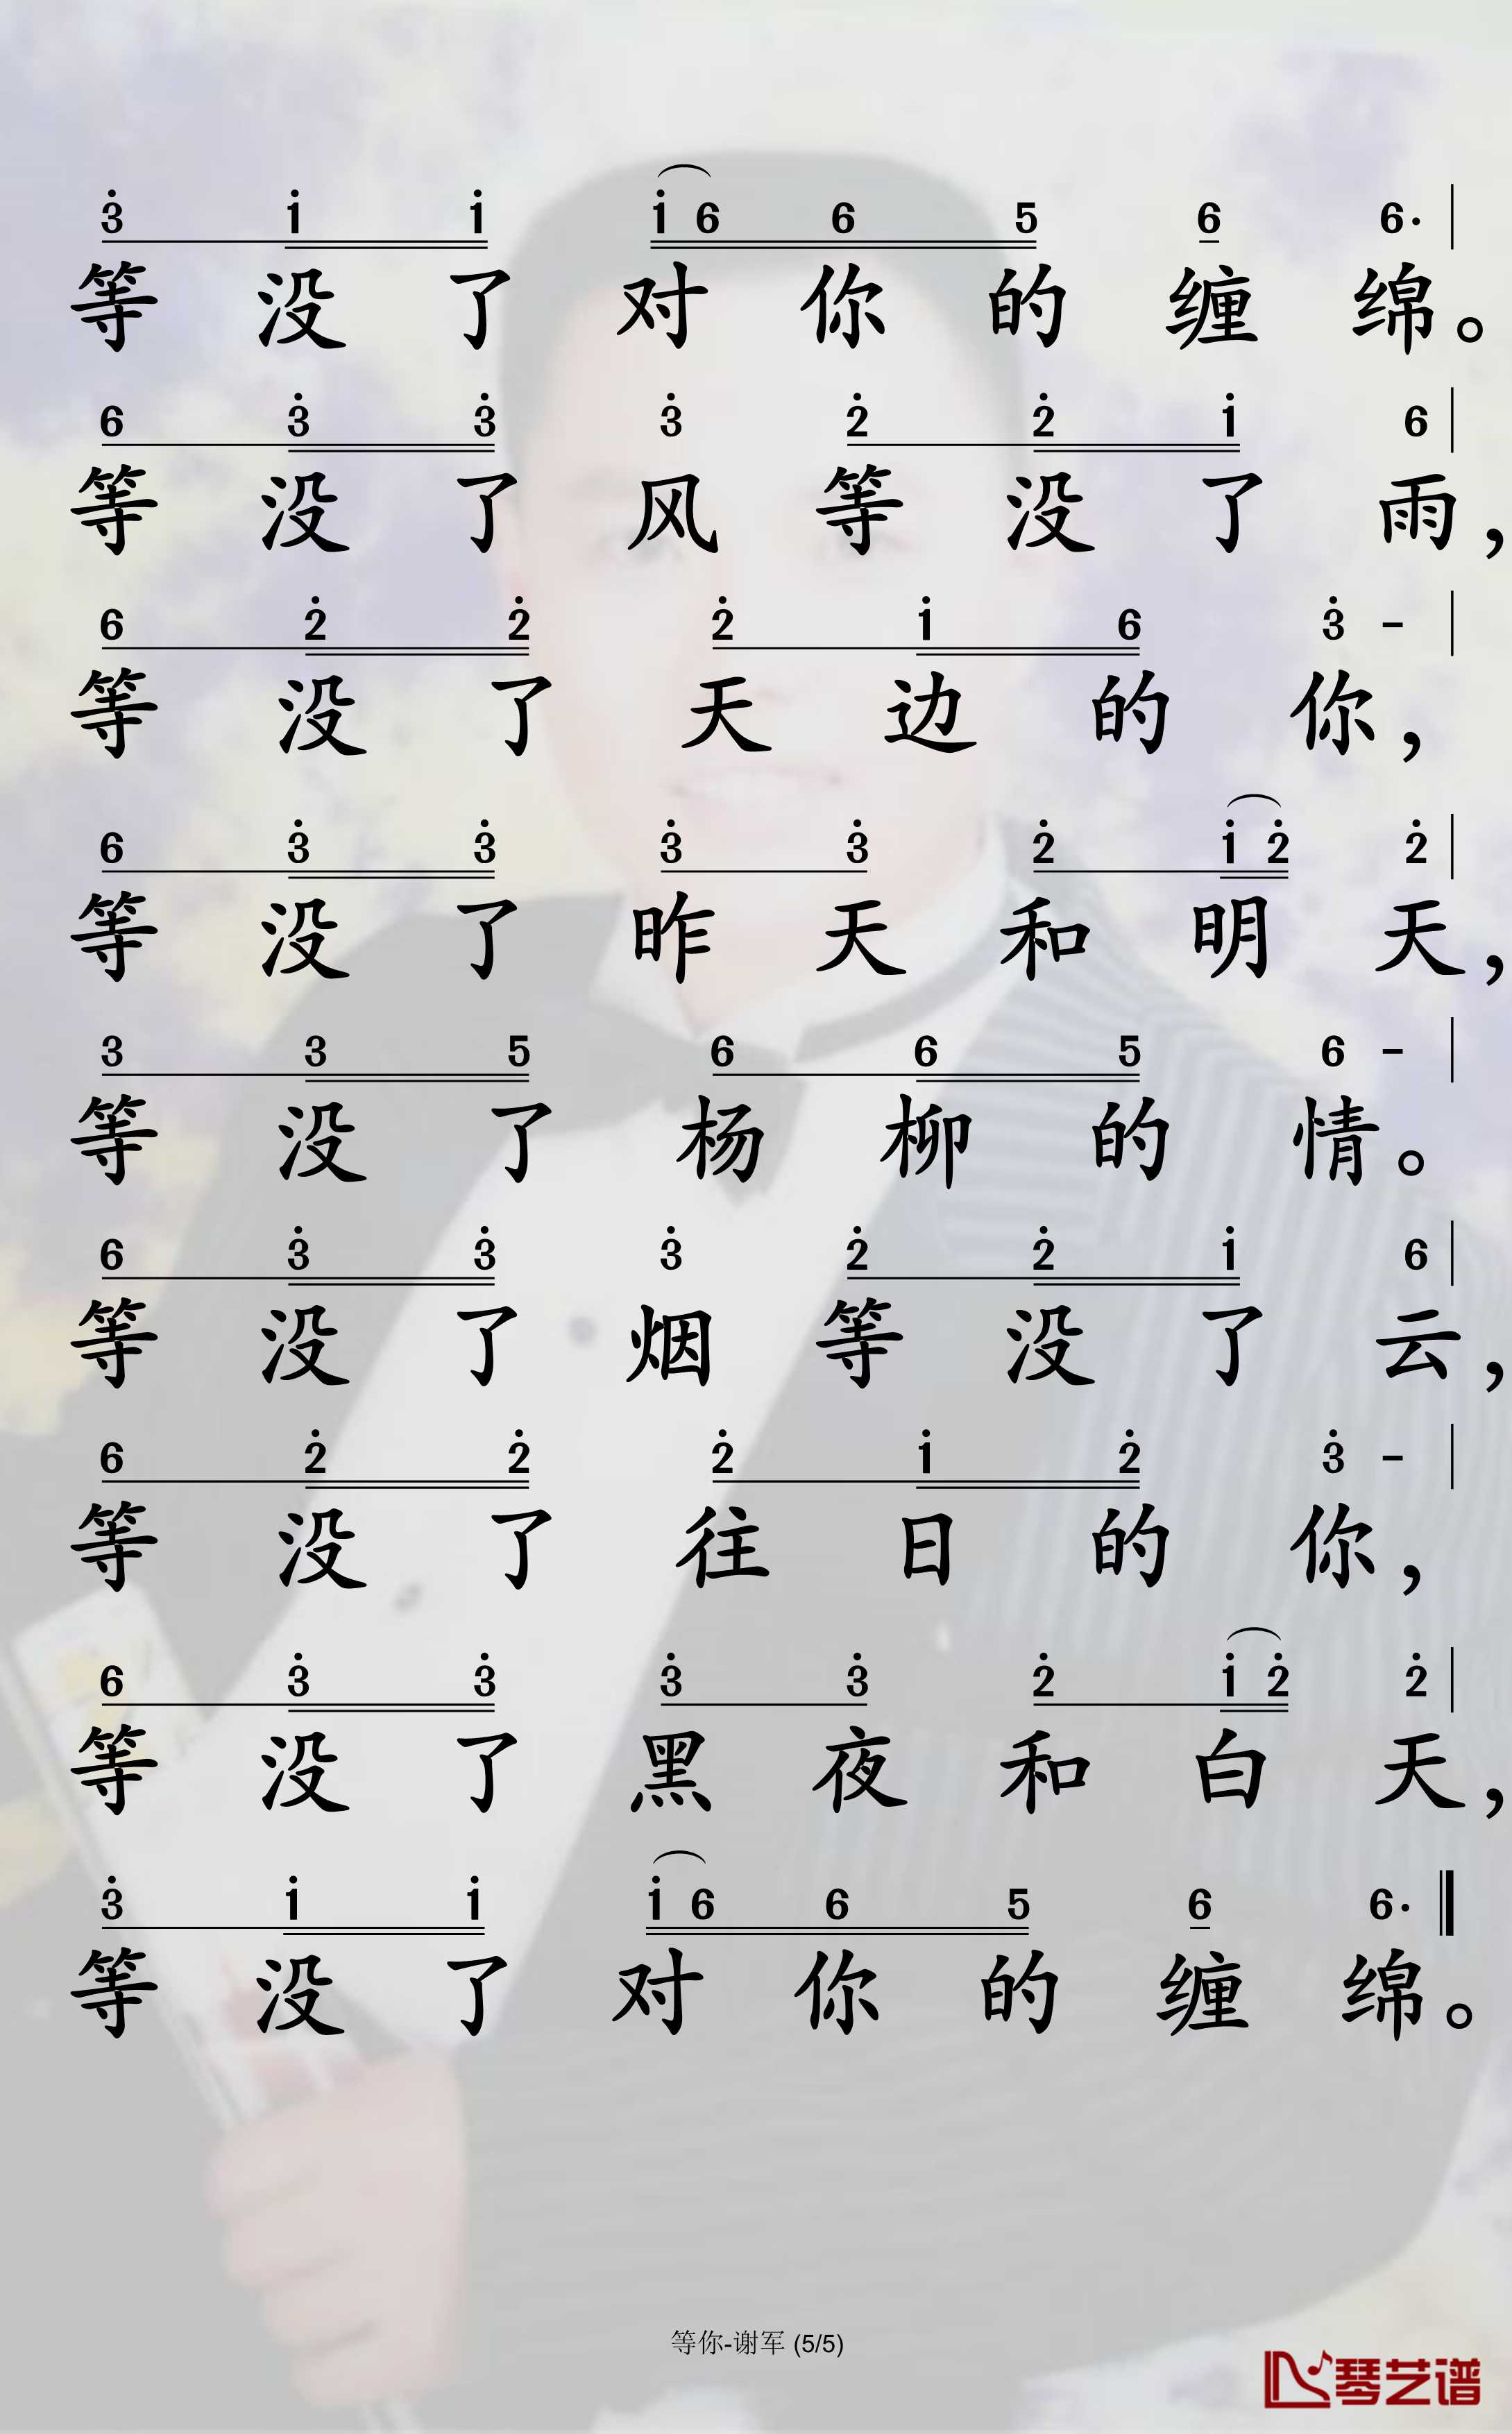 3̇ 1̇ 1̇ 1̇ 6 6 5 6 6· |
等没了对你的缠绵。
6 3̇ 3̇ 3̇ 2̇ 2̇ 1̇ 6 |
等没了风等没了雨，
6 2̇ 2̇ 2̇ 1̇ 6 3̇ - |
等没了天边的你，
6 3̇ 3̇ 3̇ 3̇ 2̇ 1̇ 2̇ 2̇ |
等没了昨天和明天，
3 3 5 6 6 5 6 - |
等没了杨柳的情。
6 3̇ 3̇ 3̇ 2̇ 2̇ 1̇ 6 |
等没了烟等没了云，
6 2̇ 2̇ 2̇ 1̇ 2̇ 3̇ - |
等没了往日的你，
6 3̇ 3̇ 3̇ 3̇ 2̇ 1̇ 2̇ 2̇ |
等没了黑夜和白天，
3̇ 1̇ 1̇ 1̇ 6 6 5 6 6· ‖
等没了对你的缠绵。
等你-谢军 (5/5)
琴艺谱